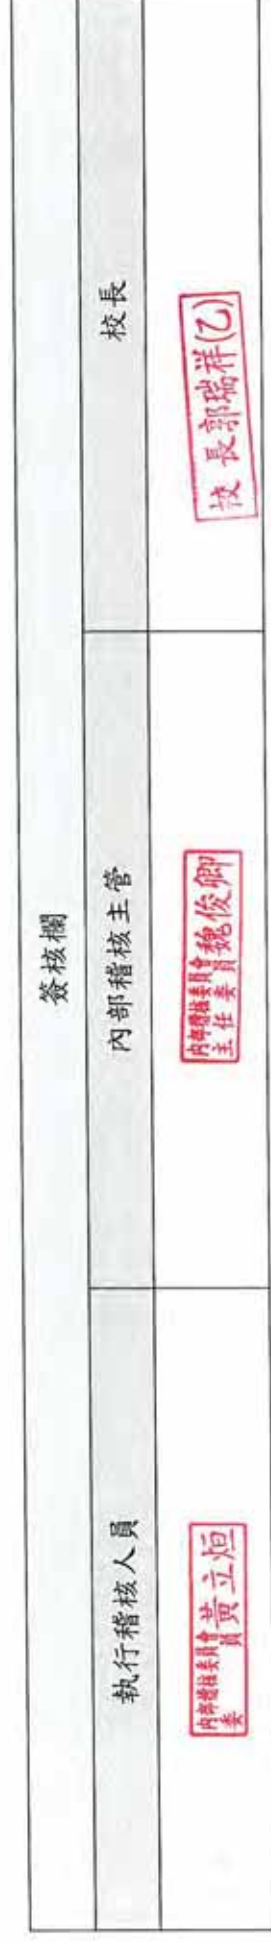 簽核欄
執行稽核人員
內部稽核主管
校長
內部稽核委員會
委員
黃立恒
內部稽核委員會
主任委員
魏俊卿
校長郭瑞祥(乙)